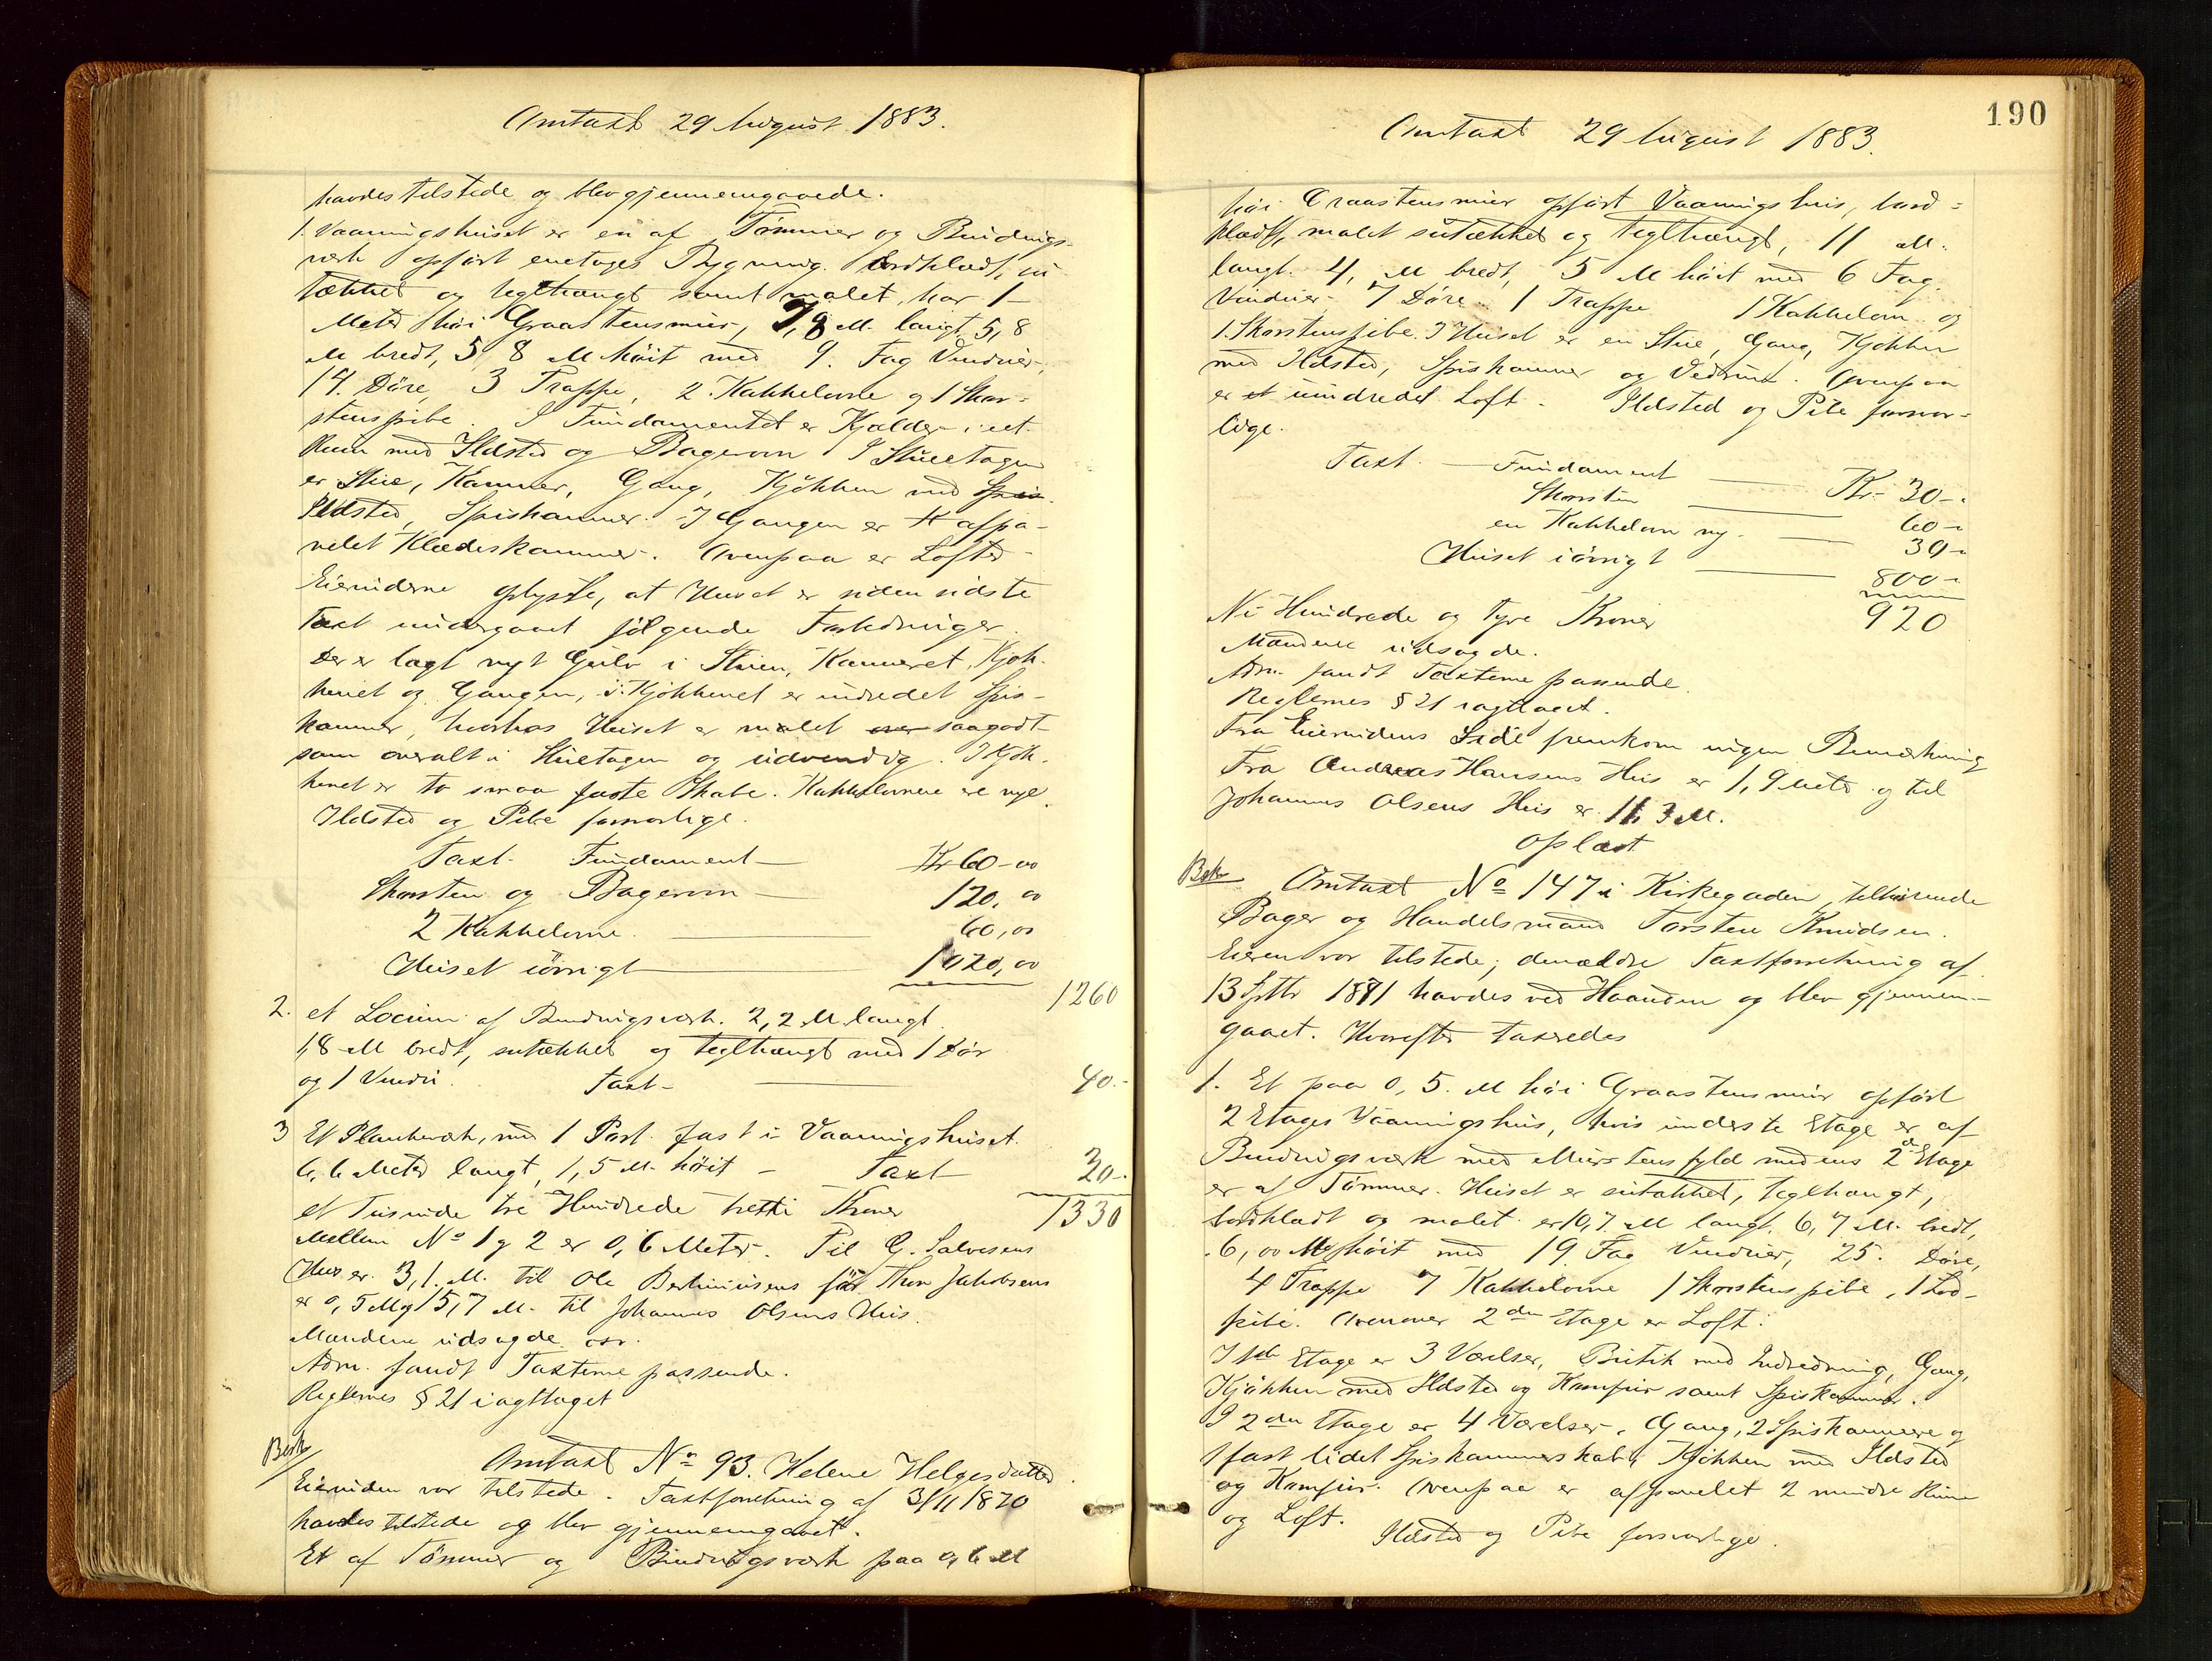 Omtaxt 29 August 1883.
havdes tilstede og blev gjennemgaaede.
1. Vaaningshuset er en af Tømmer og Bindings-
værk opført enetages Bygning. bordklædt, su-
tækket og teglhængt samt malet, har 1
Meter høi Graastensmur, 7,8 M. langt, 5,8
M bredt, 5,8 M høit med 9. Fag Vinduer,
14. Døre, 3 Trappe, 2. Kakkelovne og 1 Skor-
stenspibe. I Fundamentet er Kjælder i et
Rum med Ildsted og Bagerovn I Stueetagen
er Stue, Kammer, Gang, Kjøkken med Spis
Ildsted, Spiskammer. I Gangen er et afpa-
nelet Klædeskammer. Ovenpaa er Lofter
Eierinderne oplyste, at Huset er siden sidste
Taxt undergaaet følgende Forbedringer.
Der er lagt nyt Gulv i Stuen, Kammeret, Kjøk-
kenet og Gangen, i Kjøkkenet er indredet Spis-
kammer, hvorhos Huset er malet over saagodt
som overalt i Stuetagen og udvendig. I Kjøk-
kenet er to smaa faste Skabe. Kakkelovnene ere nye.
Ildsted og Pibe forsvarlige.
Taxt. Fundament Kr 60-00
Skorsten og Bagerovn 120,00
2 Kakkelovne 60,00
Huset iøvrigt 1020,00
1260
2. et Locum af Bindingsværk. 2,2 M langt
1,8 M bredt, sutækket og teglhængt med 1 Dør
og 1 Vindu. Taxt 40.-
3 Et Plankeværk, med 1 Port fast i Vaaningshuset
6,6 Meter langt, 1,5 M. høit - Taxt 30.-
et Tusinde tre Hundrede tretti Kroner 1330
Mellem No 1 og 2 er 0,6 Meter. Til G. Salvesens
Hus er 3,1. M. til Ole Bertiniusens før Thor Jakobsens
er 0,5 M og 15,7 M. til Johannes Olsens Hus.
Mændene udsagde osv.
Adm. fandt Taxterne passende.
Reglernes § 21 iagttaget
Besk Omtaxt No 93. Helene Helgesdatter.
Eierinden var tilstede. Taxtforretning af 3/11 1870
havdes tilstede og blev gjennemgaaet.
Et af Tømmer og Bindingsværk paa 0,6 M
190
Omtaxt 29 August 1883.
høi Graastensmur opført Vaaningshus, bord-
klædt, malet sutækket og teglhængt, 11 M.
langt. 4, M bredt, 5 M høit med 6 Fag
Vinduer 7 Døre 1 Trappe 1 Kakkelovn og
1. Skorstenspibe. I Huset er en Stue, Gang, Kjøkken
med Ildsted, Spiskammer og Vedrum. Ovenpaa
er et uindredet Loft. Ildsted og Pibe forsvar-
lige.
Taxt. Fundament Kr 30-
Skorsten 60-
en Kakkelovn ny. 30-
Huset iøvrigt 800-
Ni Hundrede og tyve Kroner 920
Mændene udsagde.
Adm. fandt Taxterne passende.
Reglernes § 21 iagttaget.
Fra Eierindens Side fremkom ingen Bemærkning
Fra Andreas Hansens Hus er 1,9 Meter og til
Johannes Olsens Hus er 11,3 M.
Oplæst
Besk Omtaxt No 147 i Kirkegaden, tilhørende
Bager og Handelsmand Torsten Knudsen.
Eieren var tilstede; den ældre Taxtforretning af
13 Sptbr 1871 havdes ved Haanden og blev gjennem-
gaaet. Hvorefter taxeredes
1. Et paa 0,5. M høi Graastensmur opført
2 Etages Vaaningshus, hvis underste Etage er af
Bindingsværk med Murstensfyld medens 2d Etage
er af Tømmer. Huset er sutækket, teglhængt,
bordklædt og malet. er 10,7 M langt, 6,7 M. bredt,
6,00 M høit med 19 Fag Vinduer, 25. Døre,
4 Trappe 7 Kakkelovne 1 Skorstenspibe, 1 Lod-
pibe. Ovenover 2den Etage er Loft.
I 1ste Etage er 3 Værelser, Butik med Indredning, Gang,
Kjøkken med Ildsted og Komfur samt Spiskammer.
I 2den Etage er 4 Værelser. Gang, 2 Spiskammere og
1 fast lidet Spiskammerskab, Kjøkken med Ildsted
og Komfur. Ovenpaa er afpanelet 2 mindre Rum
og Loft.
Ildsted og Pibe forsvarlige.